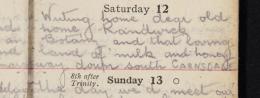 Saturday 12
Writing home dear old
home Randwick
Botany and that loving
land of milk and honey
faraway down south CARNSDALE
8th after
Trinity. Sunday 13
the day we meet our